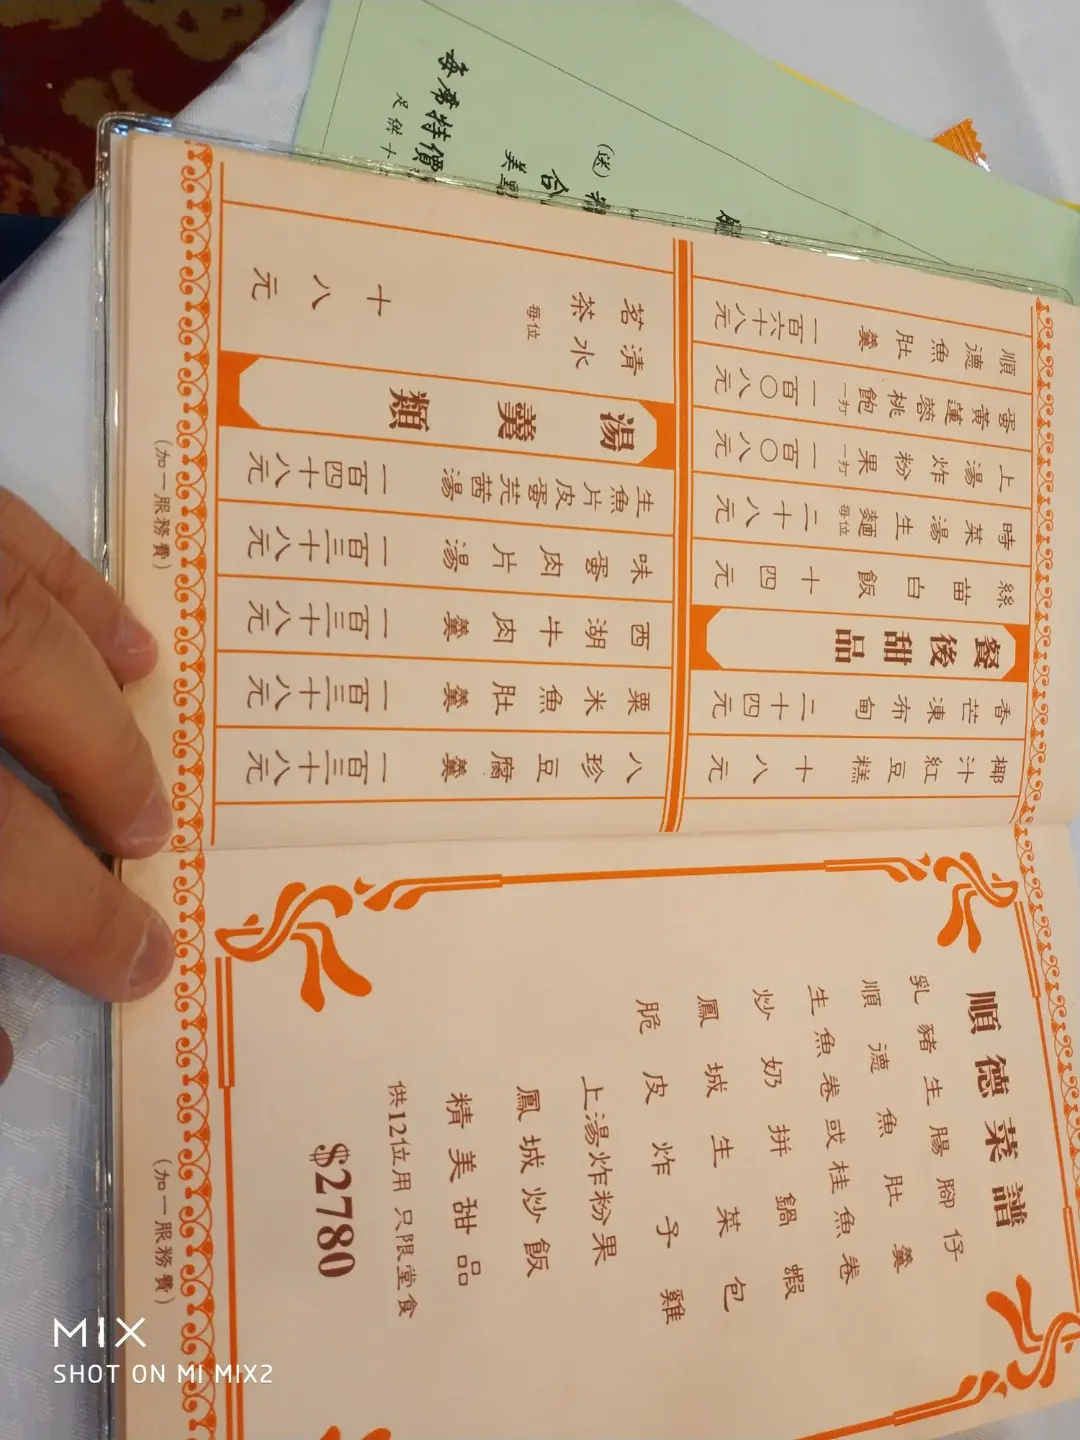 椰汁紅豆糕 十八元
香芒凍布甸 二十四元
餐後甜品
絲苗白飯 十四元
時菜湯生麵 每位 二十八元
上湯炸粉果 一打 一百〇八元
蛋黃蓮蓉桃飽 一打 一百〇八元
順德魚肚羹 一百六十八元
八珍豆腐羹 一百三十八元
粟米魚肚羹 一百三十八元
西湖牛肉羹 一百三十八元
味蛋肉片湯 一百三十八元
生魚片皮蛋芫茜湯 一百四十八元
湯羹類
清水
茗茶 每位 十八元
(加一服務費)
順德菜譜
乳豬生腸腳仔
順德魚肚羹
生魚卷或桂魚卷
炒奶拼鍋蝦
鳳城生菜包
脆皮炸子雞
上湯炸粉果
鳳城炒飯
精美甜品
供12位用 只限堂食
$2780
(加一服務費)
(送)
美點
每席特價
MIX
SHOT ON MI MIX2